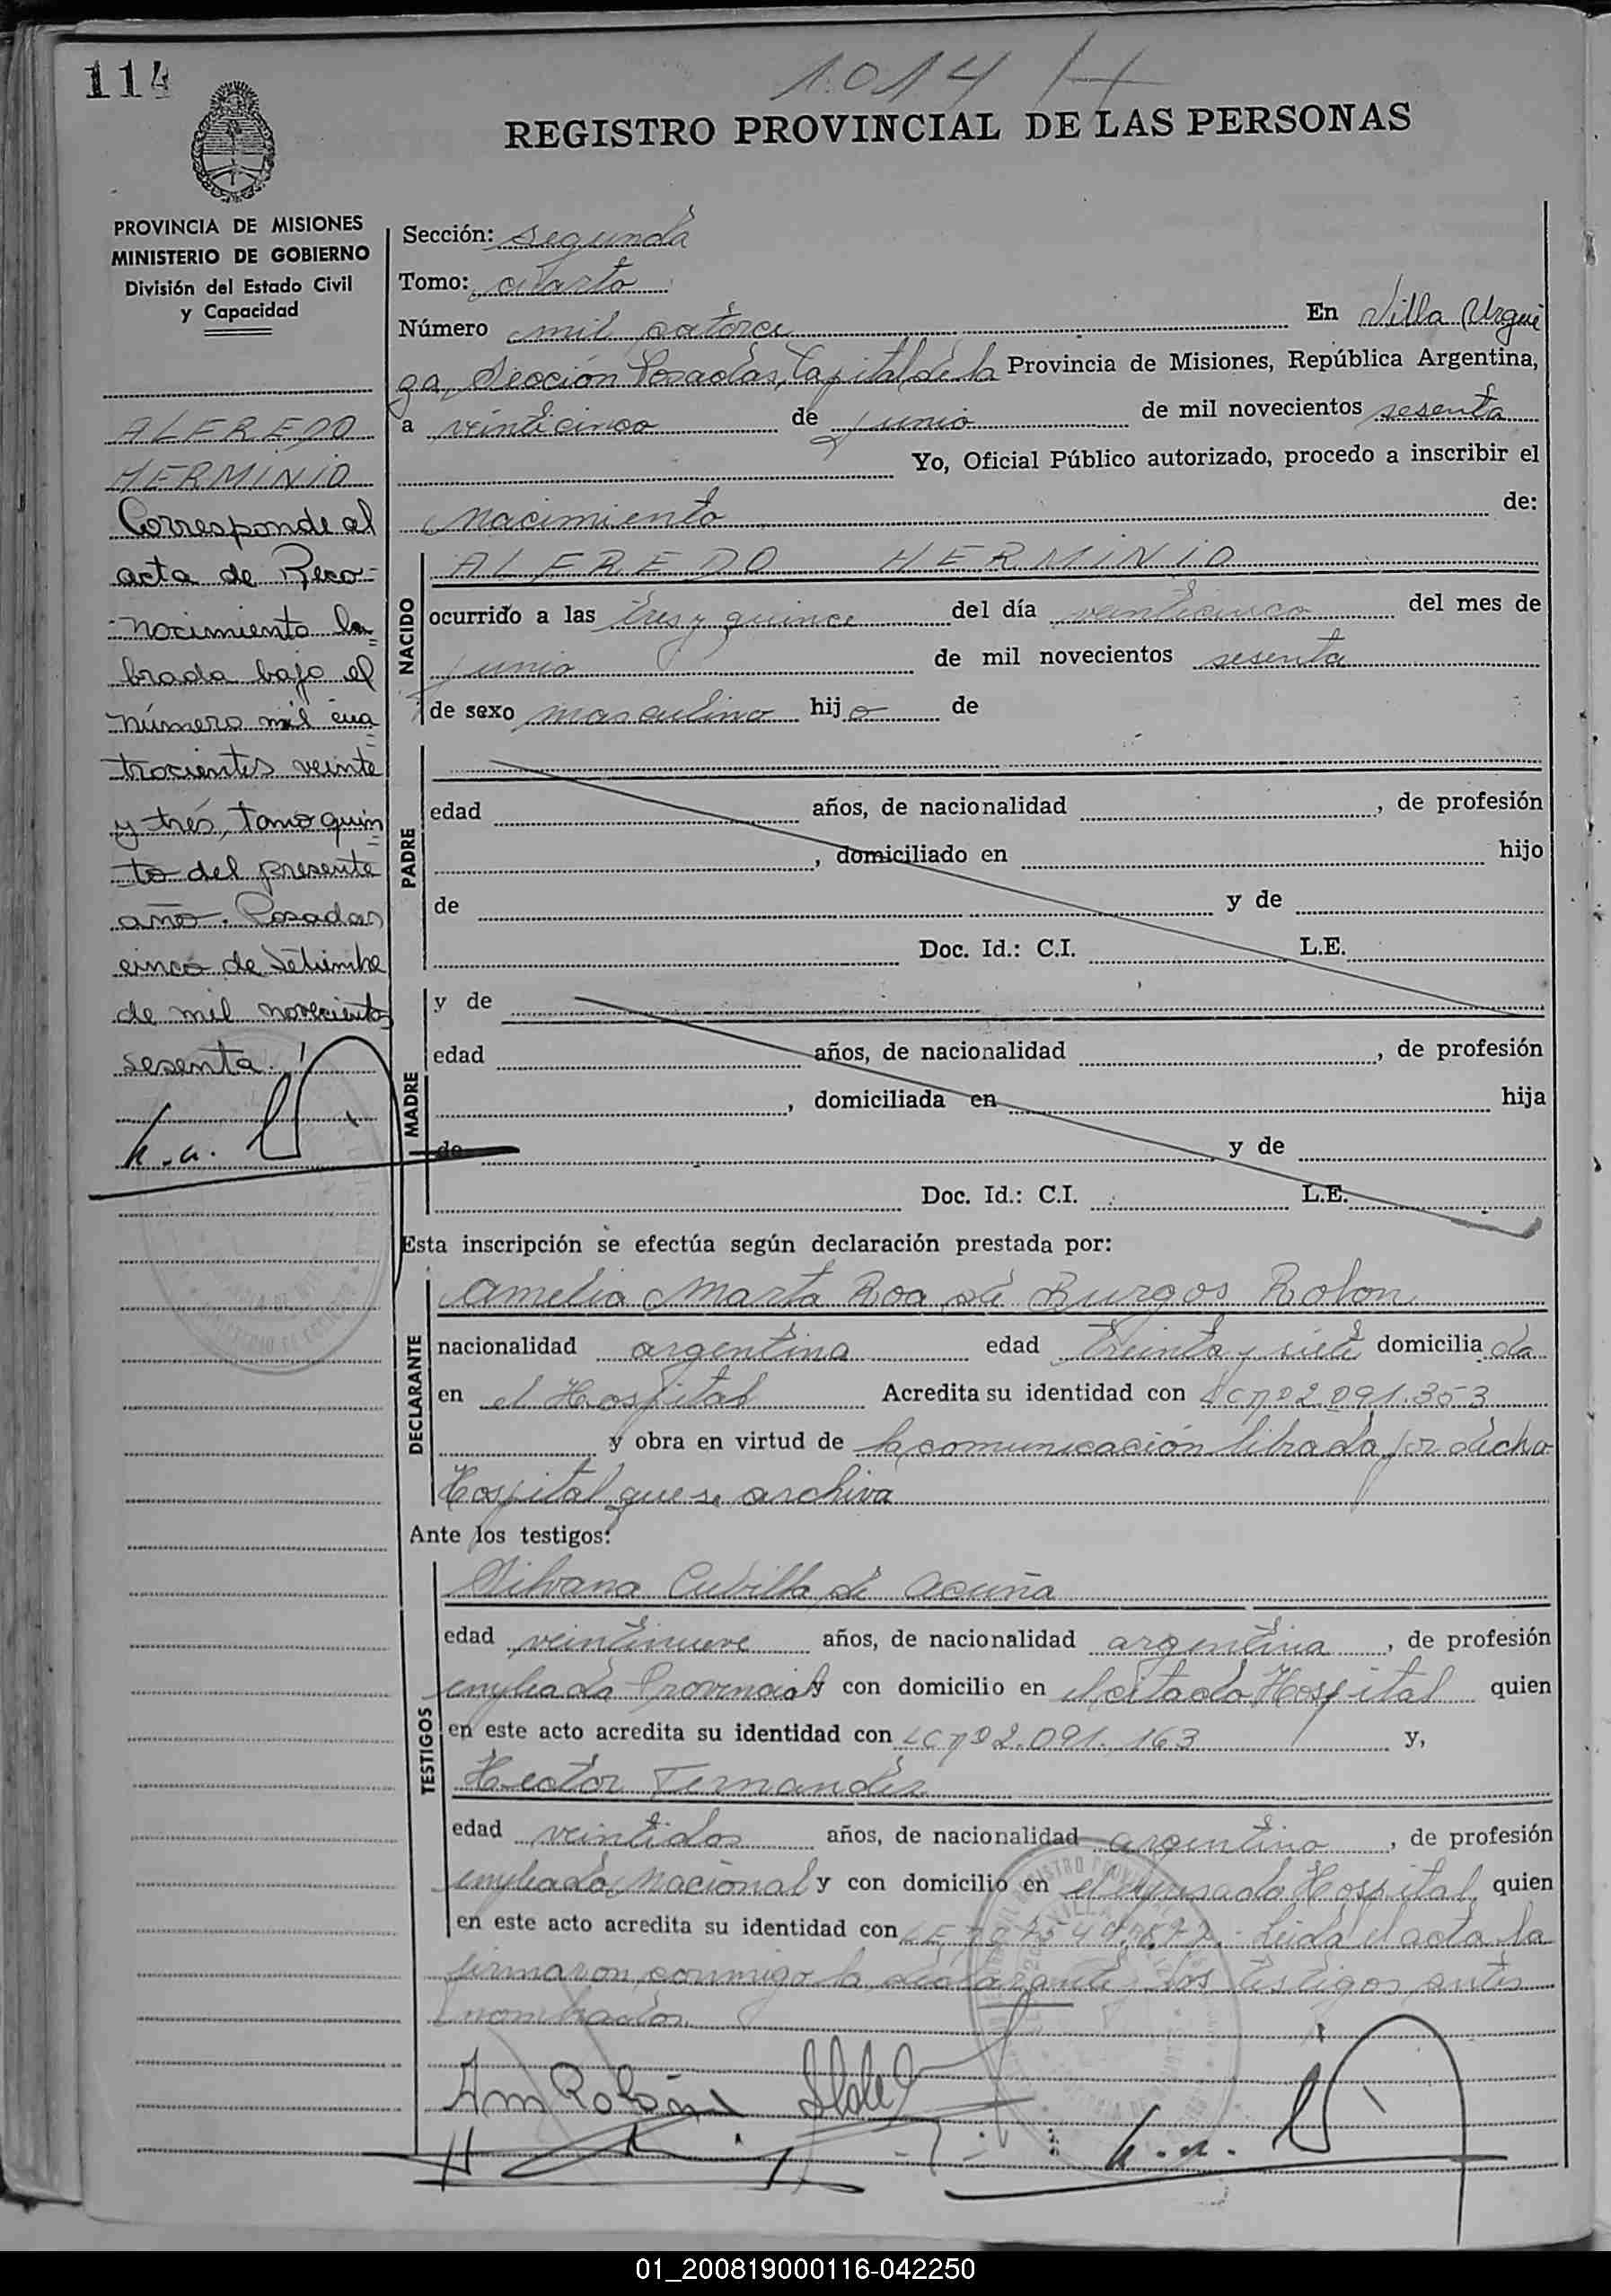 114
1.014 H
REGISTRO PROVINCIAL DE LAS PERSONAS
PROVINCIA DE MISIONES
MINISTERIO DE GOBIERNO
División del Estado Civil
y Capacidad
ALFREDO
HERMINIO
Corresponde al
acta de Reco-
nocimiento la=
brada bajo el
número mil cua
=
trocientos veinte
y trés, tomo quin
=
to del presente
año. Posadas,
cinco de Setiembre
de mil novecientos
sesenta.
Sección: segunda
Tomo: cuarto
Número mil catorce En Villa Urqui
za, Sección Posadas, Capital de la Provincia de Misiones, República Argentina,
a veinticinco de junio de mil novecientos sesenta
Yo, Oficial Público autorizado, procedo a inscribir el
nacimiento de:
NACIDO
ALFREDO HERMINIO
ocurrido a las tres y quince del día veinticinco del mes de
junio de mil novecientos sesenta
de sexo masculino hijo de
PADRE
edad años, de nacionalidad , de profesión
, domiciliado en hijo
de y de
Doc. Id.: C.I. L.E.
MADRE
y de
edad años, de nacionalidad , de profesión
, domiciliada en hija
de y de
Doc. Id.: C.I. L.E.
Esta inscripción se efectúa según declaración prestada por:
DECLARANTE
Amelia Marta Roa de Burgos Rolon
nacionalidad argentina edad treinta y siete domiciliada
en el Hospital Acredita su identidad con LC nº 2.091.353
y obra en virtud de la comunicación librada por dicho
Hospital que se archiva
Ante los testigos:
TESTIGOS
Silvana Cubilla de Acuña
edad veintinueve años, de nacionalidad argentina, de profesión
empleada Provincial y con domicilio en el citado Hospital quien
en este acto acredita su identidad con LC nº 2.091.163 y,
Hector Fernandez
edad veintidos años, de nacionalidad argentino, de profesión
empleado Nacional y con domicilio en el expresado Hospital, quien
en este acto acredita su identidad con LE nº Leida el acta la
firmaron conmigo la declarante y los testigos antes
nombrados.
Am Rolón
01_200819000116-042250